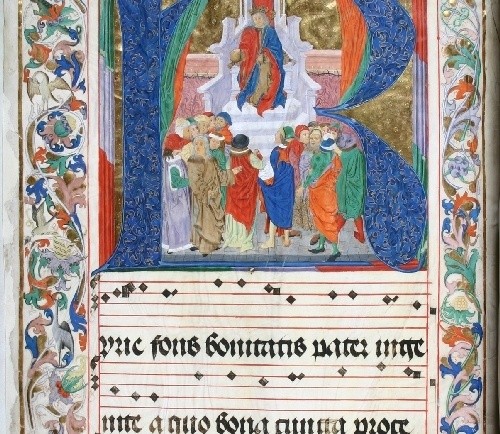 Kyrie fons bonitatis pater inge
nite a quo bona cuncta proce